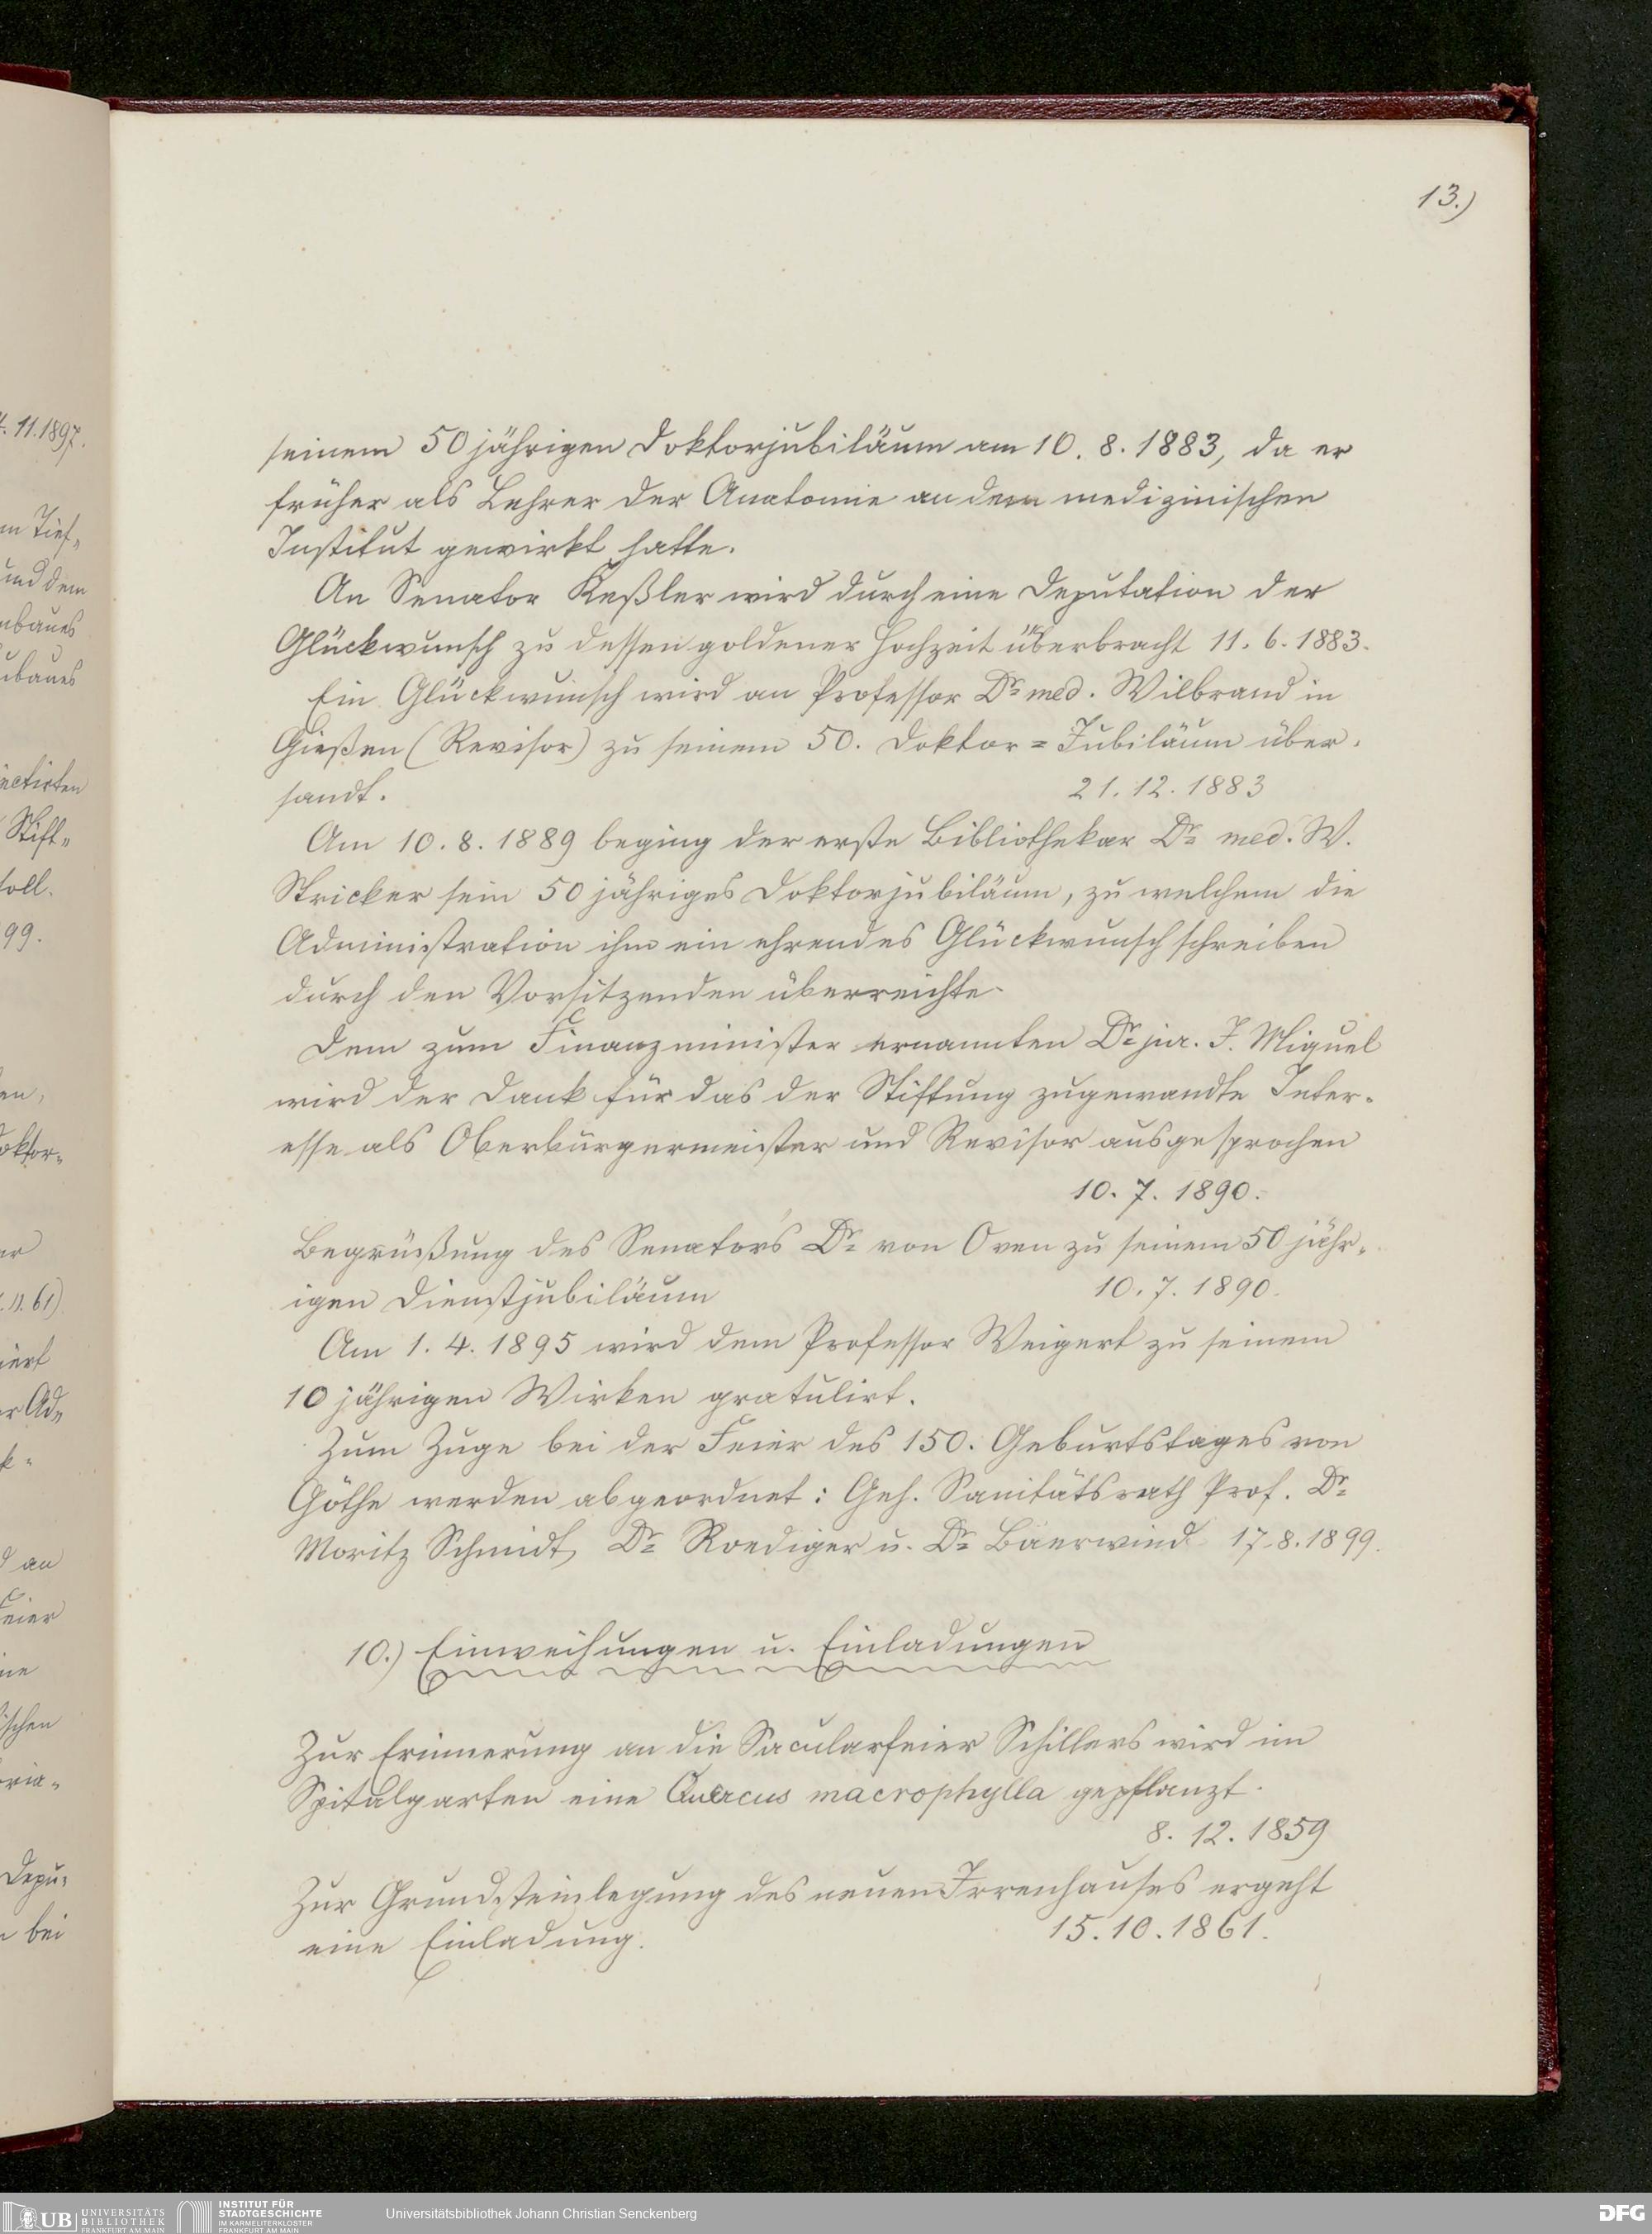 13.)
seinem 50jährigen Doktorjubiläum am 10. 8. 1883, da er
früher als Lehrer der Anatomie an dem medizinischen
Institut gewirkt hatte.
An Senator Keßler wird durch eine Deputation der
Glückwunsch zu dessen goldener Hochzeit überbracht 11. 6. 1883.
Ein Glückwunsch wird an Professor Dr med. Wilbrand in
Gießen (Revisor) zu seinem 50. Doktor=Jubiläum über-
sandt. 21. 12. 1883
Am 10. 8. 1889 beging der erste Bibliothekar Dr med. W.
Stricker sein 50jähriges Doktorjubiläum, zu welchem die
Administration ihm ein ehrendes Glückwunschschreiben
durch den Vorsitzenden überreichte.
Dem zum Finanzminister ernannten Dr jur. J. Miquel
wird der Dank für das der Stiftung zugewandte Inter-
esse als Oberbürgermeister und Revisor ausgesprochen
10. 7. 1890.
Begrüßung des Senators Dr von Oven zu seinem 50jähr-
igen Dienstjubiläum 10. 7. 1890.
Am 1. 4. 1895 wird dem Professor Weigert zu seinem
10jährigen Wirken gratulirt.
Zum Zuge bei der Feier des 150. Geburtstages von
Göthe werden abgeordnet: Geh. Sanitätsrath Prof. Dr
Moritz Schmidt, Dr Roediger u. Dr Bäerwind 17. 8. 1899.
10.) Einweihungen u. Einladungen
Zur Erinnerung an die Sacularfeier Schillers wird im
Spitalgarten eine Quercus macrophylla gepflanzt.
8. 12. 1859
Zur Grundsteinlegung des neuen Irrenhauses ergeht
eine Einladung. 15. 10. 1861.
11.1897.
Tief-
und dem
nbaues
ubaues
Stift-
soll.
99.
an
bei
UB UNIVERSITÄTS BIBLIOTHEK FRANKFURT AM MAIN
INSTITUT FÜR STADTGESCHICHTE IM KARMELITERKLOSTER FRANKFURT AM MAIN
Universitätsbibliothek Johann Christian Senckenberg
DFG